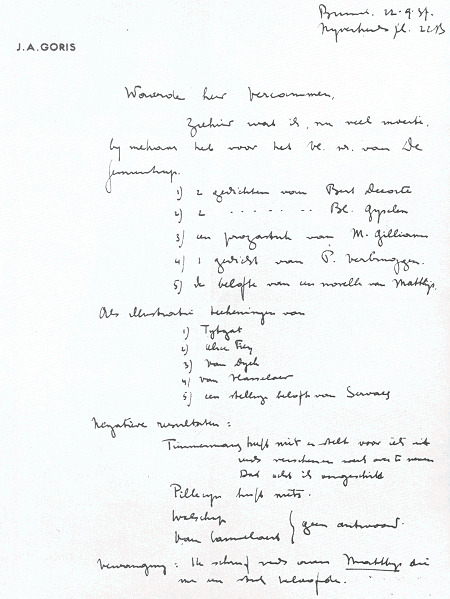 Brussel. 22.9.37.
Nijverheids pl. 2 
J.A.GORIS
Waarde heer Vercammen,
Ziehier wat ik, na veel moeite,
bij mekaar heb voor het Vl. nr. van De
Gemeenschap.
1) 2 gedichten van Bert Decorte
2) 2 . . . . . . Bl. Gyselen
3) een prozastuk van M. Gilliams
4) 1 gedicht van P. Verbruggen.
5) de belofte van een novelle van Matthijs.
Als illustratie teekeningen van
1) Tytgat
2) Alice Frey
3) Van Dyck
4) Van Vlasselaer
5) een stellige belofte van Servaes
Negatieve resultaten :
Timmermans heeft niets en stelt voor iets uit
reeds verschenen werk over te nemen
Dat acht ik ongeschikt
Pillecyn heeft niets.
Walschap
Van Cauwelaert } geen antwoord.
: Ik schreef reeds over Matthijs die
me een stuk beloofde.